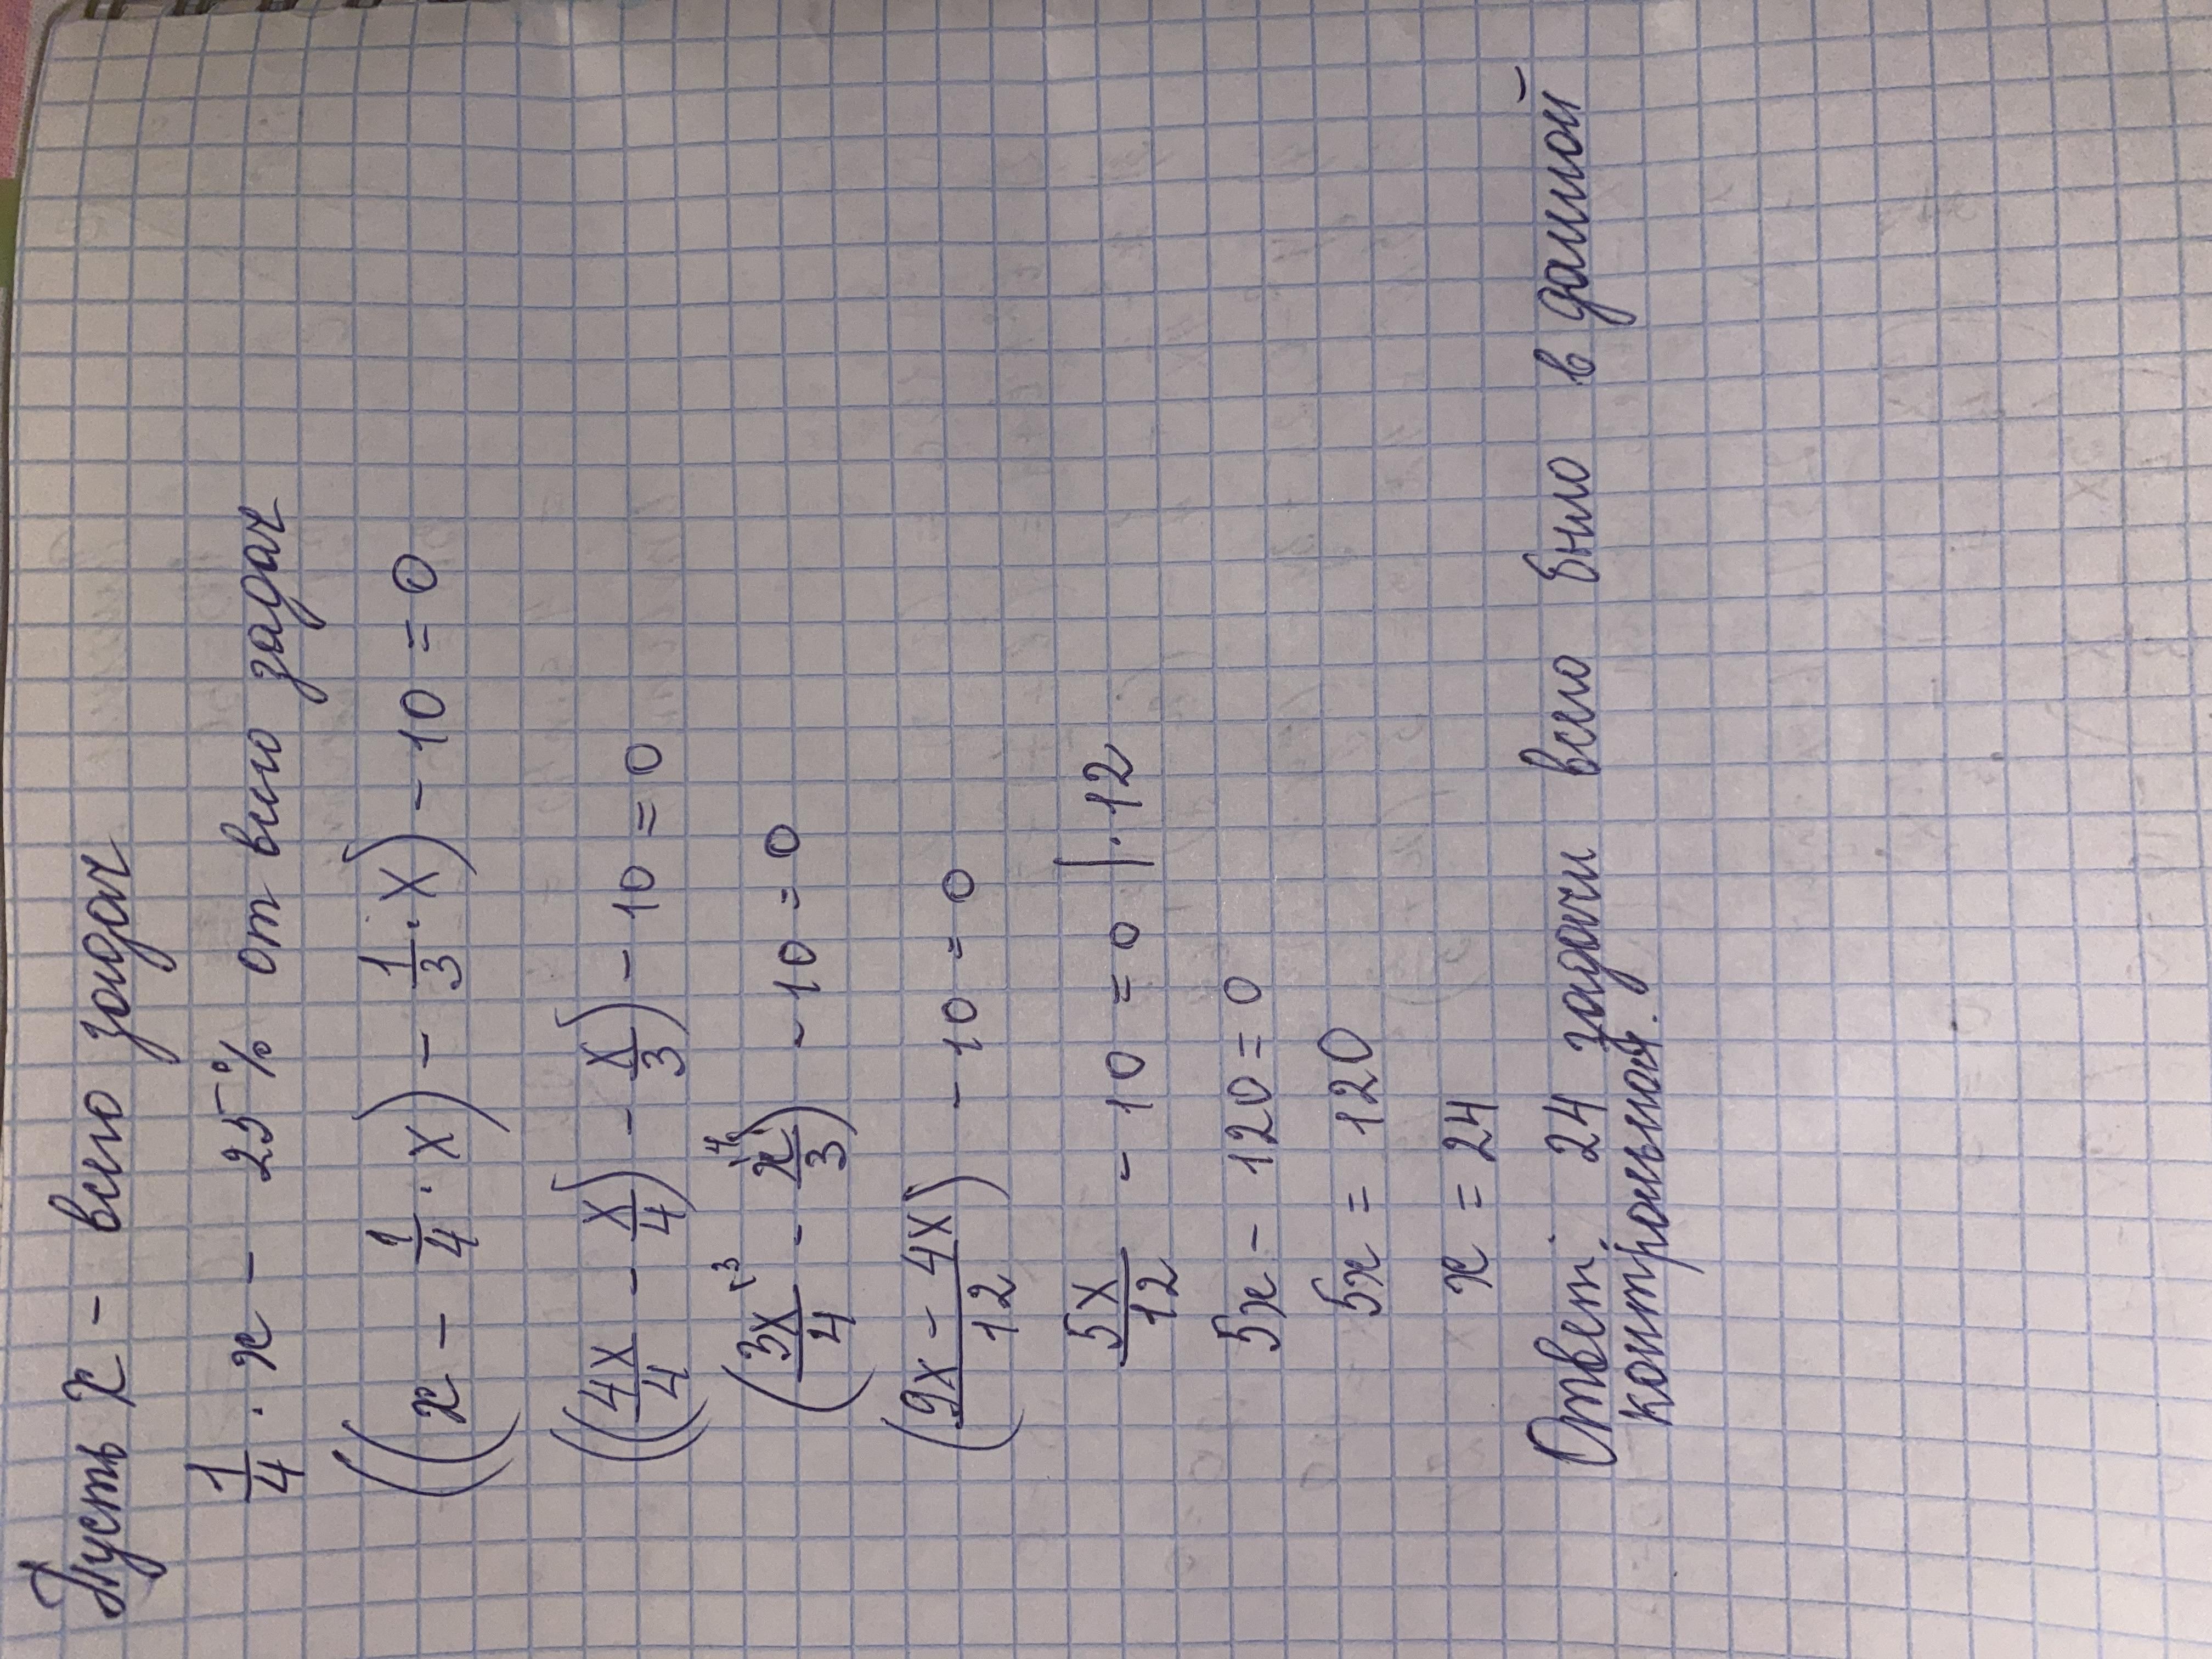 Пусть x - всего задач
1/4 · x - 25% от всего задач
((x - 1/4 · x) - 1/3 · x) - 10 = 0
((4x/4 - x/4) - x/3) - 10 = 0
(3x/4 \3 - x/3 \4) - 10 = 0
(9x - 4x/12) - 10 = 0
5x/12 - 10 = 0 | · 12
5x - 120 = 0
5x = 120
x = 24
Ответ: 24 задачи всего было в данной
контрольной.